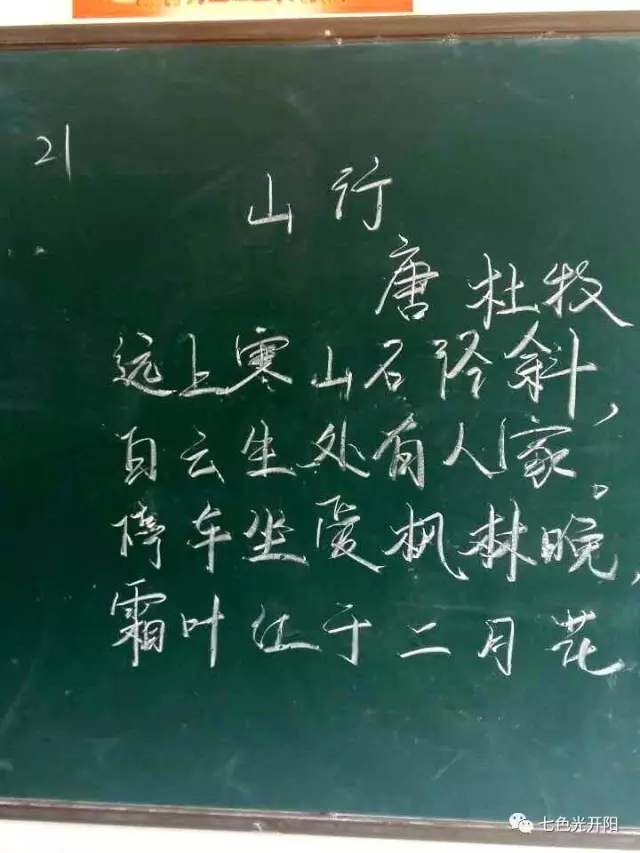 21
山行
唐 杜牧
远上寒山石径斜，
白云生处有人家。
停车坐爱枫林晚，
霜叶红于二月花
七色光开阳